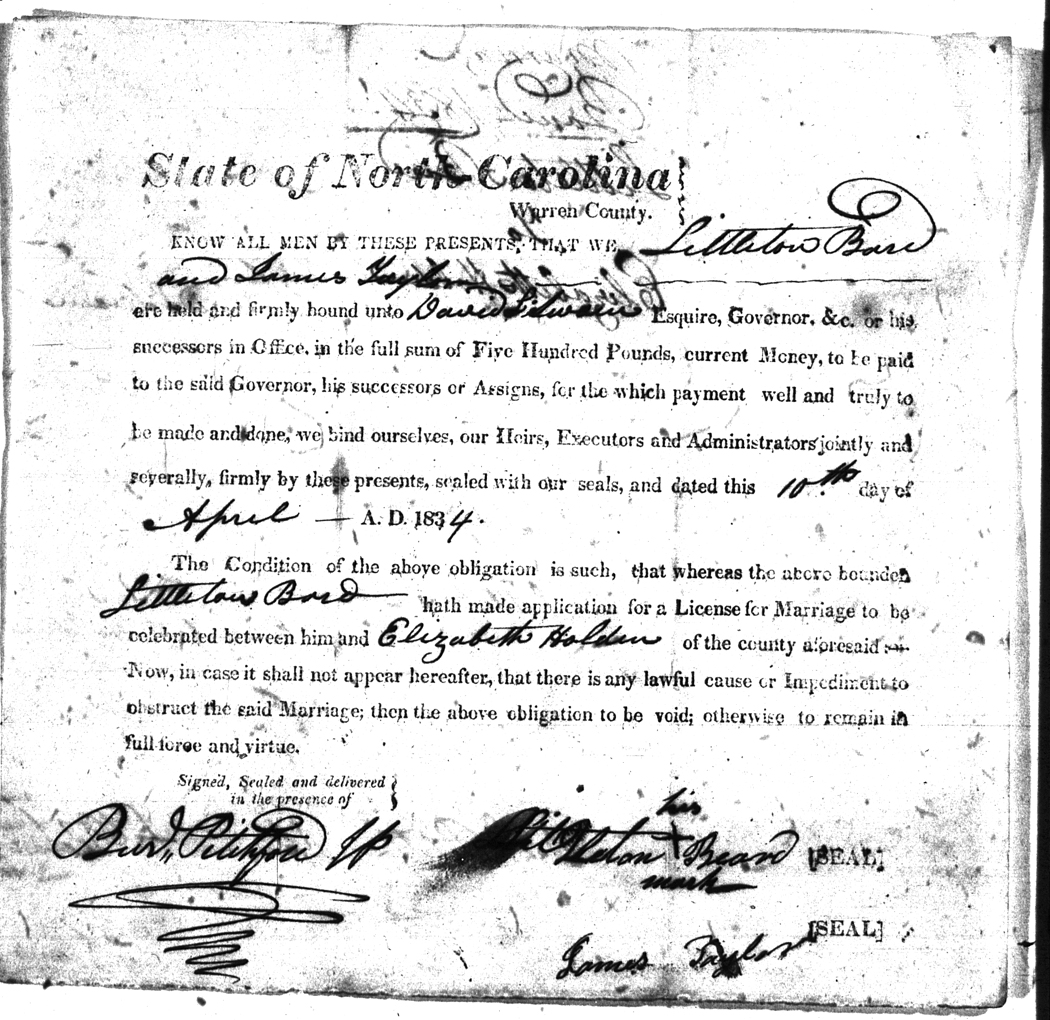 State of North Carolina
Warren County.
KNOW ALL MEN BY THESE PRESENTS, THAT WE, Littleton Bard
and James Taylor
are held and firmly bound unto David L Swain Esquire, Governor, &c. or his
successors in Office, in the full sum of Five Hundred Pounds, current Money, to be paid
to the said Governor, his successors or Assigns, for the which payment well and truly to
be made and done, we bind ourselves, our Heirs, Executors and Administrators jointly and
severally, firmly by these presents, sealed with our seals, and dated this 10th day of
April — A. D. 1834.
The Condition of the above obligation is such, that whereas the above bounden
Littleton Bard hath made application for a License for Marriage to be
celebrated between him and Elizabeth Holden of the county aforesaid :
Now, in case it shall not appear hereafter, that there is any lawful cause or Impediment to
obstruct the said Marriage; then the above obligation to be void; otherwise to remain in
full force and virtue.
Signed, Sealed and delivered
in the presence of
his
Littleton X Beard [SEAL]
mark
James Taylor [SEAL]